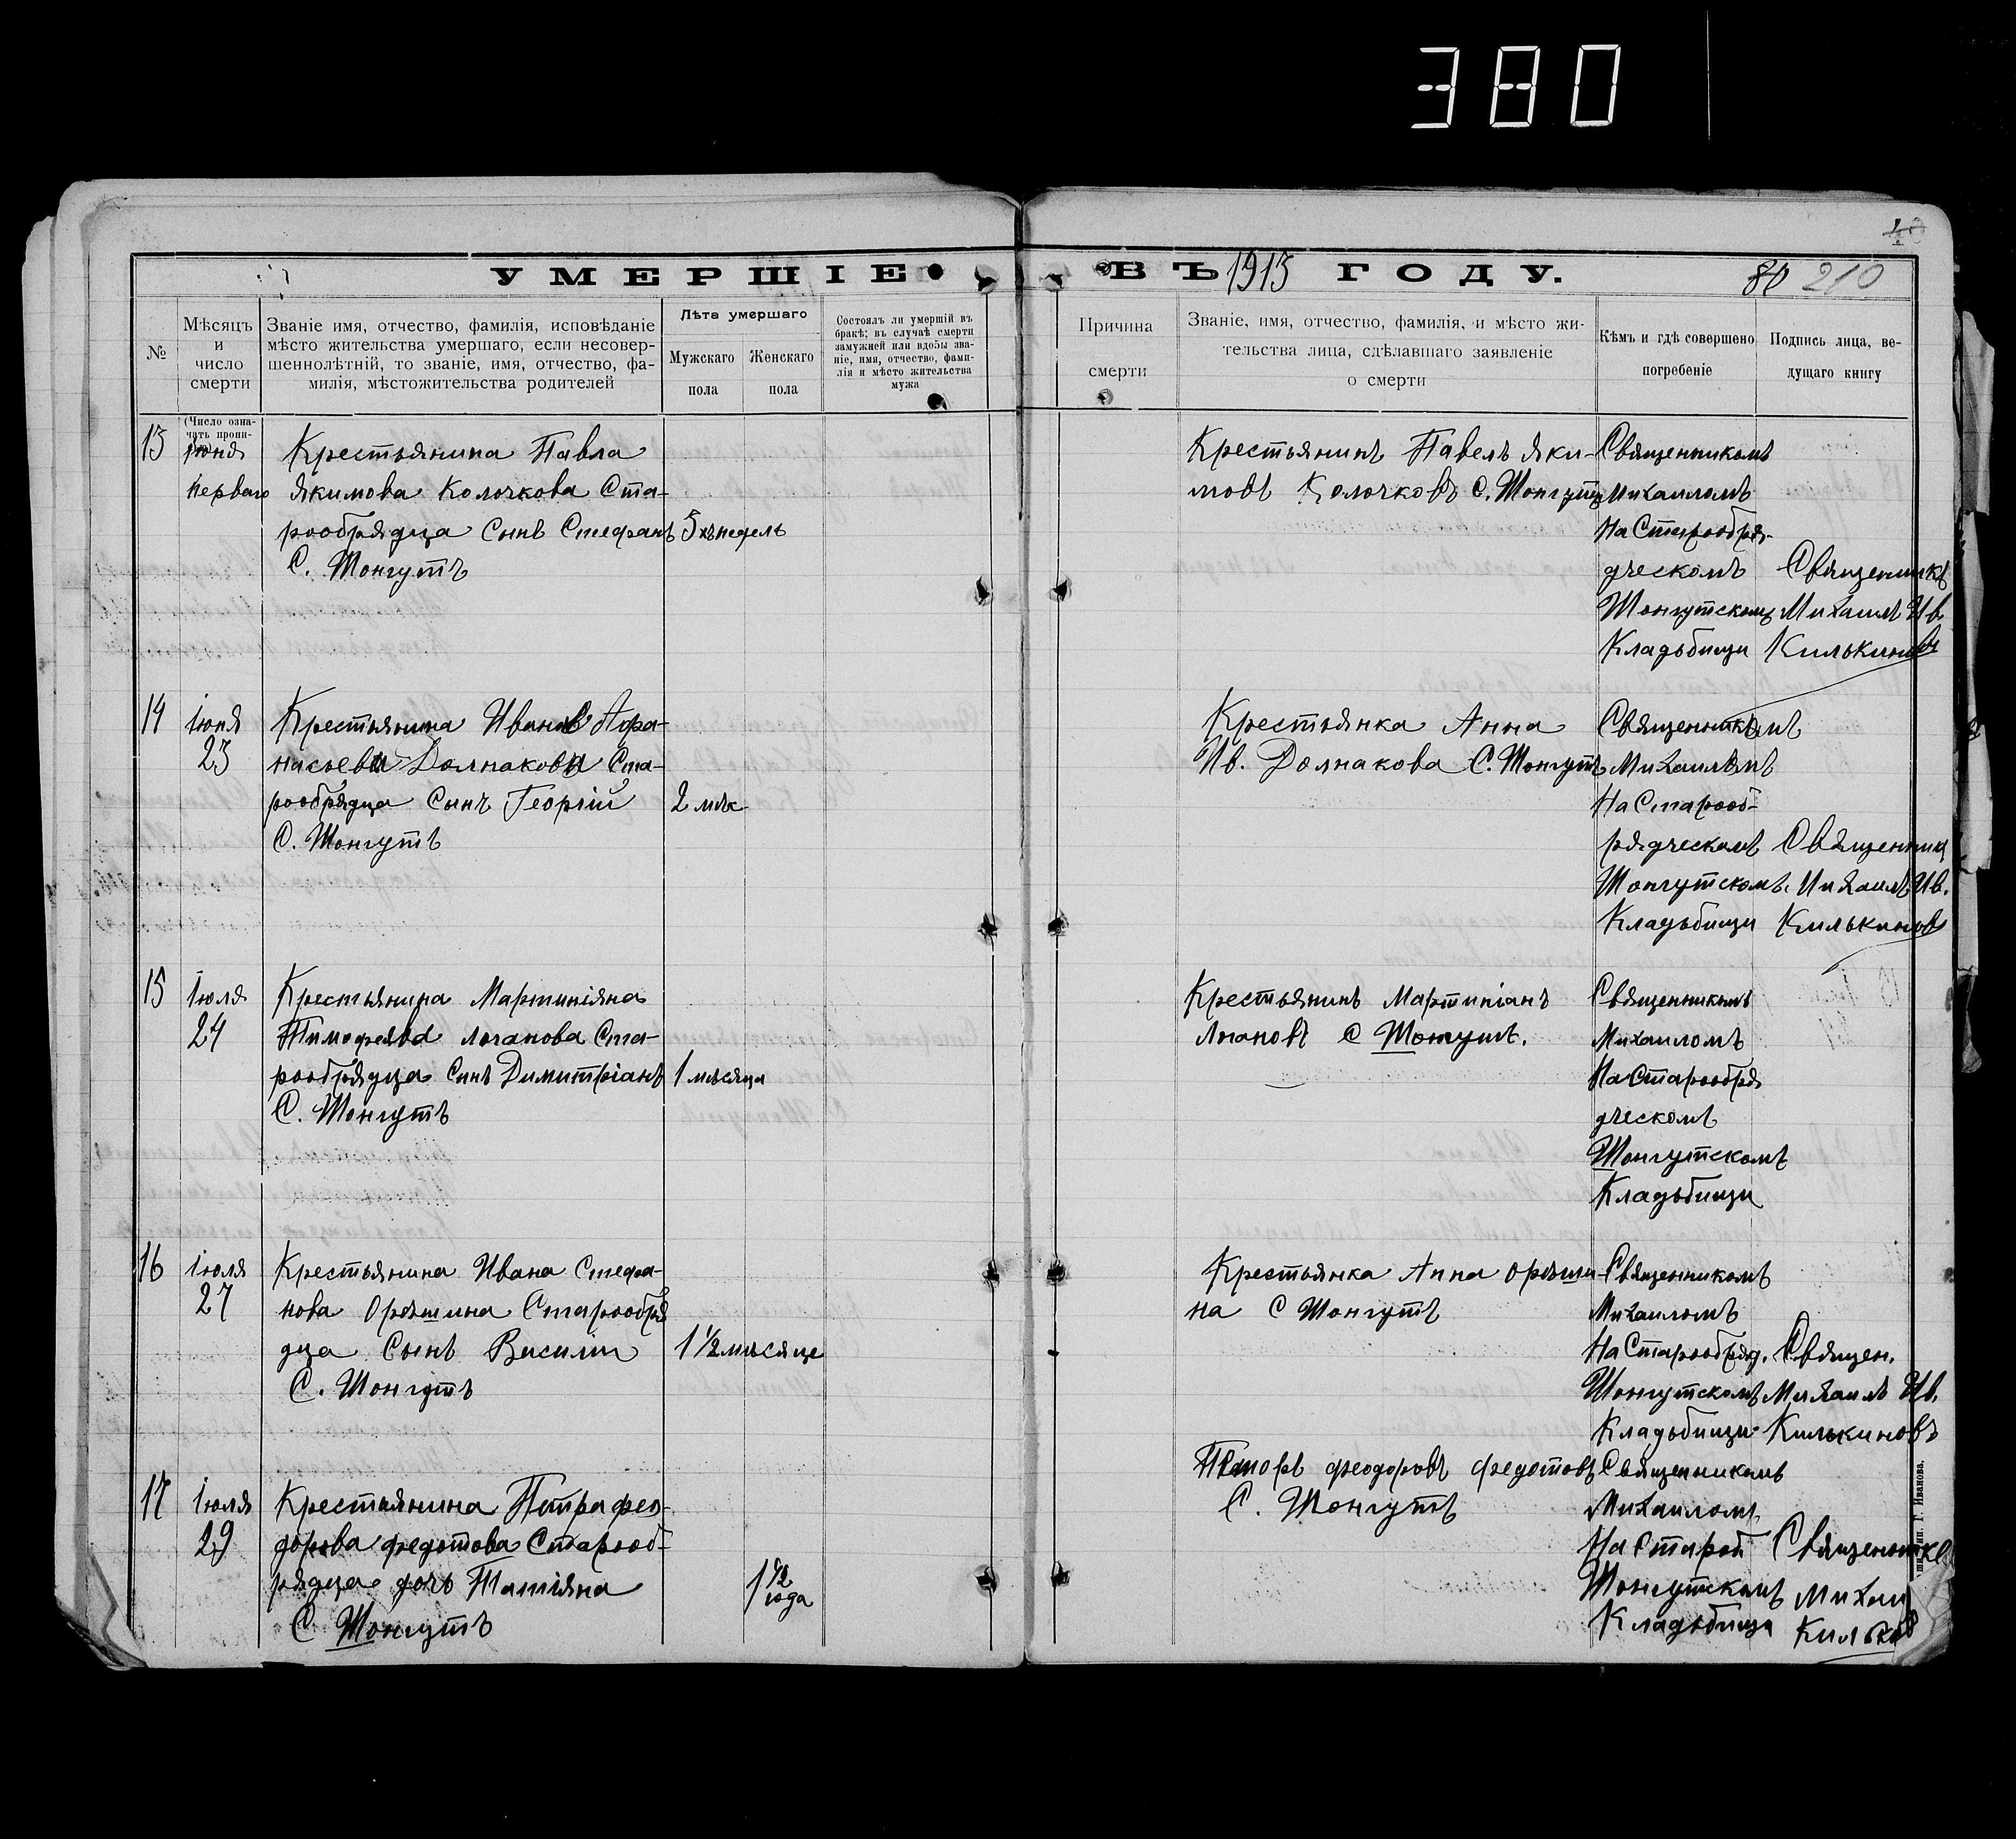 380
40
УМЕРШІЕ ВЪ 1915 ГОДУ.
80 210
№
Мѣсяцъ и число смерти
Званіе имя, отчество, фамилія, исповѣданіе мѣсто жительства умершаго, если несовершеннолѣтній, то званіе, имя, отчество, фамилія, мѣстожительства родителей
Лѣта умершаго
Мужскаго пола
Женскаго пола
Состоялъ ли умершій въ бракѣ; въ случаѣ смерти замужней или вдовы званіе, имя, отчество, фамилія и мѣсто жительства мужа
Причина смерти
Званіе, имя, отчество, фамилія, и мѣсто жительства лица, сдѣлавшаго заявленіе о смерти
Кѣмъ и гдѣ совершено погребеніе
Подпись лица, ведущаго книгу
(Число означать
13
Іюня
перваго
Крестьянина Павла
Якимова Колочкова Ста-
рообрядца Сынъ Стефанъ
С. Шонгутъ
5 недель
Крестьянинъ Павелъ Яки-
мовъ Колочковъ С. Шонгутъ
Священникомъ
Михаиломъ
На Старообря-
дческомъ
Шонгутскомъ
Кладьбищи
Священникъ
Михаилъ Ив.
Килькиновъ
14
Іюня
23
Крестьянина Ивана Афа-
насьева Долнакова Ста-
рообрядца Сынъ Георгій
С. Шонгутъ
2 мѣс
Крестьянка Анна
Ив. Долнакова С. Шонгутъ
Священникомъ
Михаиломъ
На Старооб-
рядческомъ
Шонгутскомъ
Кладьбищи
Священник
Михаилъ Ив.
Килькиновъ
15
Іюля
24
Крестьянина Мартиніяна
Тимофеява Логанова Ста-
рообрядца Сынъ Димитріанъ
С. Шонгутъ
1 мѣсяца
Крестьянинъ Мартиніанъ
Логановъ С Шонгутъ.
Священникомъ
Михаиломъ
На Старообря
дческомъ
Шонгутскомъ
Кладьбищи
16
Іюля
27
Крестьянина Ивана Стефа-
нова Орѣшина Старообря
дца Сынъ Василій
С. Шонгутъ
1 1/2 мѣсяца
Крестьянка Анна Орѣши-
на С Шонгутъ
Священникомъ
Михаиломъ
На Старообряд.
Шонгутскомъ
Кладьбищи
Священ.
Михаилъ Ив.
Килькиновъ
17
Іюля
29
Крестьянина Петра Фео-
дорова Федотова Старооб-
рядца дочь Татіяна
С Шонгутъ
1 1/2 года
Феодоровъ Федотовъ
С. Шонгутъ
Священникомъ
Михаиломъ
На Староб
Шонгутскомъ
Кладьбищи
Священникъ
Михаил
Г. Иванова.